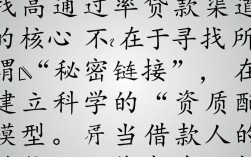 找高通过率贷款渠道
的核心 不在于寻找所
谓 “秘密链接”，在
建立科学的“资质配
模型。 当借款人的